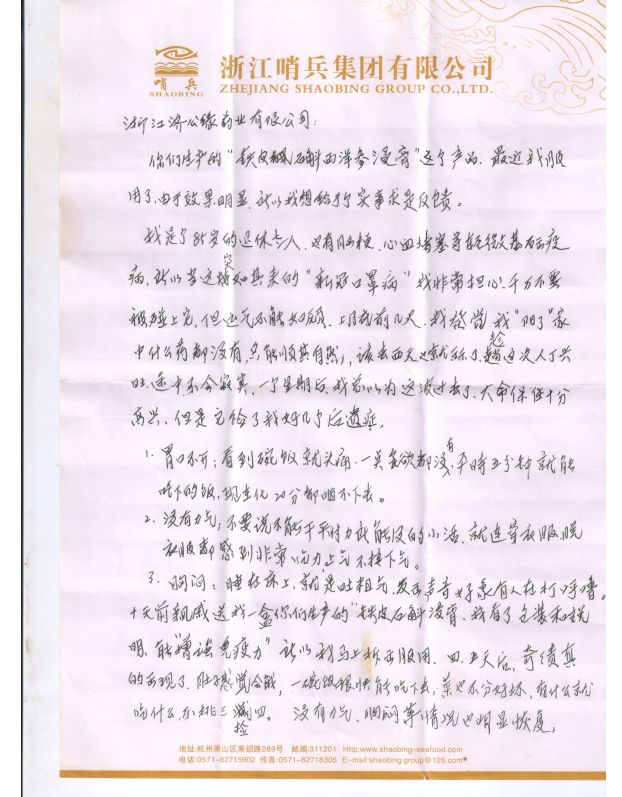 哨兵
SHAOBING
浙江哨兵集团有限公司
ZHEJIANG SHAOBING GROUP CO.,LTD.
浙江济公缘药业有限公司:
你们生产的"铁皮枫石斛西洋参浸膏"这个产品，最近我服
用了，由于效果明显，所以我想给予实事求是反馈。
我是个85岁的退休老人，也有脑梗、心血堵塞等
病，所以当这突如其来的"新冠口罩病"我非常担心，千万不要
被碰上它，但运气不能如愿，上月我前几天，我发觉我"阳了"家
中什么药都没有，只能顺其自然，该去西天也就算了，趁这次人丁兴
旺，途中不会寂寞，一个星期后，我总以为这波过去了，大命保住十分
高兴，但是它给了我好几个后遗症，
1. 胃口不开：看到碗饭就头痛，一点食欲都没有，平时五分钟就能
吃下的饭，现在化20分都咽不下去。
2. 没有力气：不要说不能干平时力所能及的小活，就连穿衣服脱
衣服都感到非常吃力，上气不接下气。
3. 胸闷：睡在床上，就是吐粗气，发出声音好象有人在打呼噜。
十天前亲戚送我一盒你们生产的"铁皮石斛浸膏，我看了包装和说
明，能"增强免疫力"所以我马上拆开服用，四、五天后，奇绩真
的出现了，肚子感觉会饿，一碗饭很快能吃下去，菜也不分好坏，有什么就
吃什么，不挑三捡四。没有力气、胸闷等情况也明显恢复，
地址:杭州萧山区萧绍路289号 邮编:311201 Http:www.shaobing-seafood.com
电话:0571-82715902 传真:0571-82718305 E-mail:shaobing group@126.com